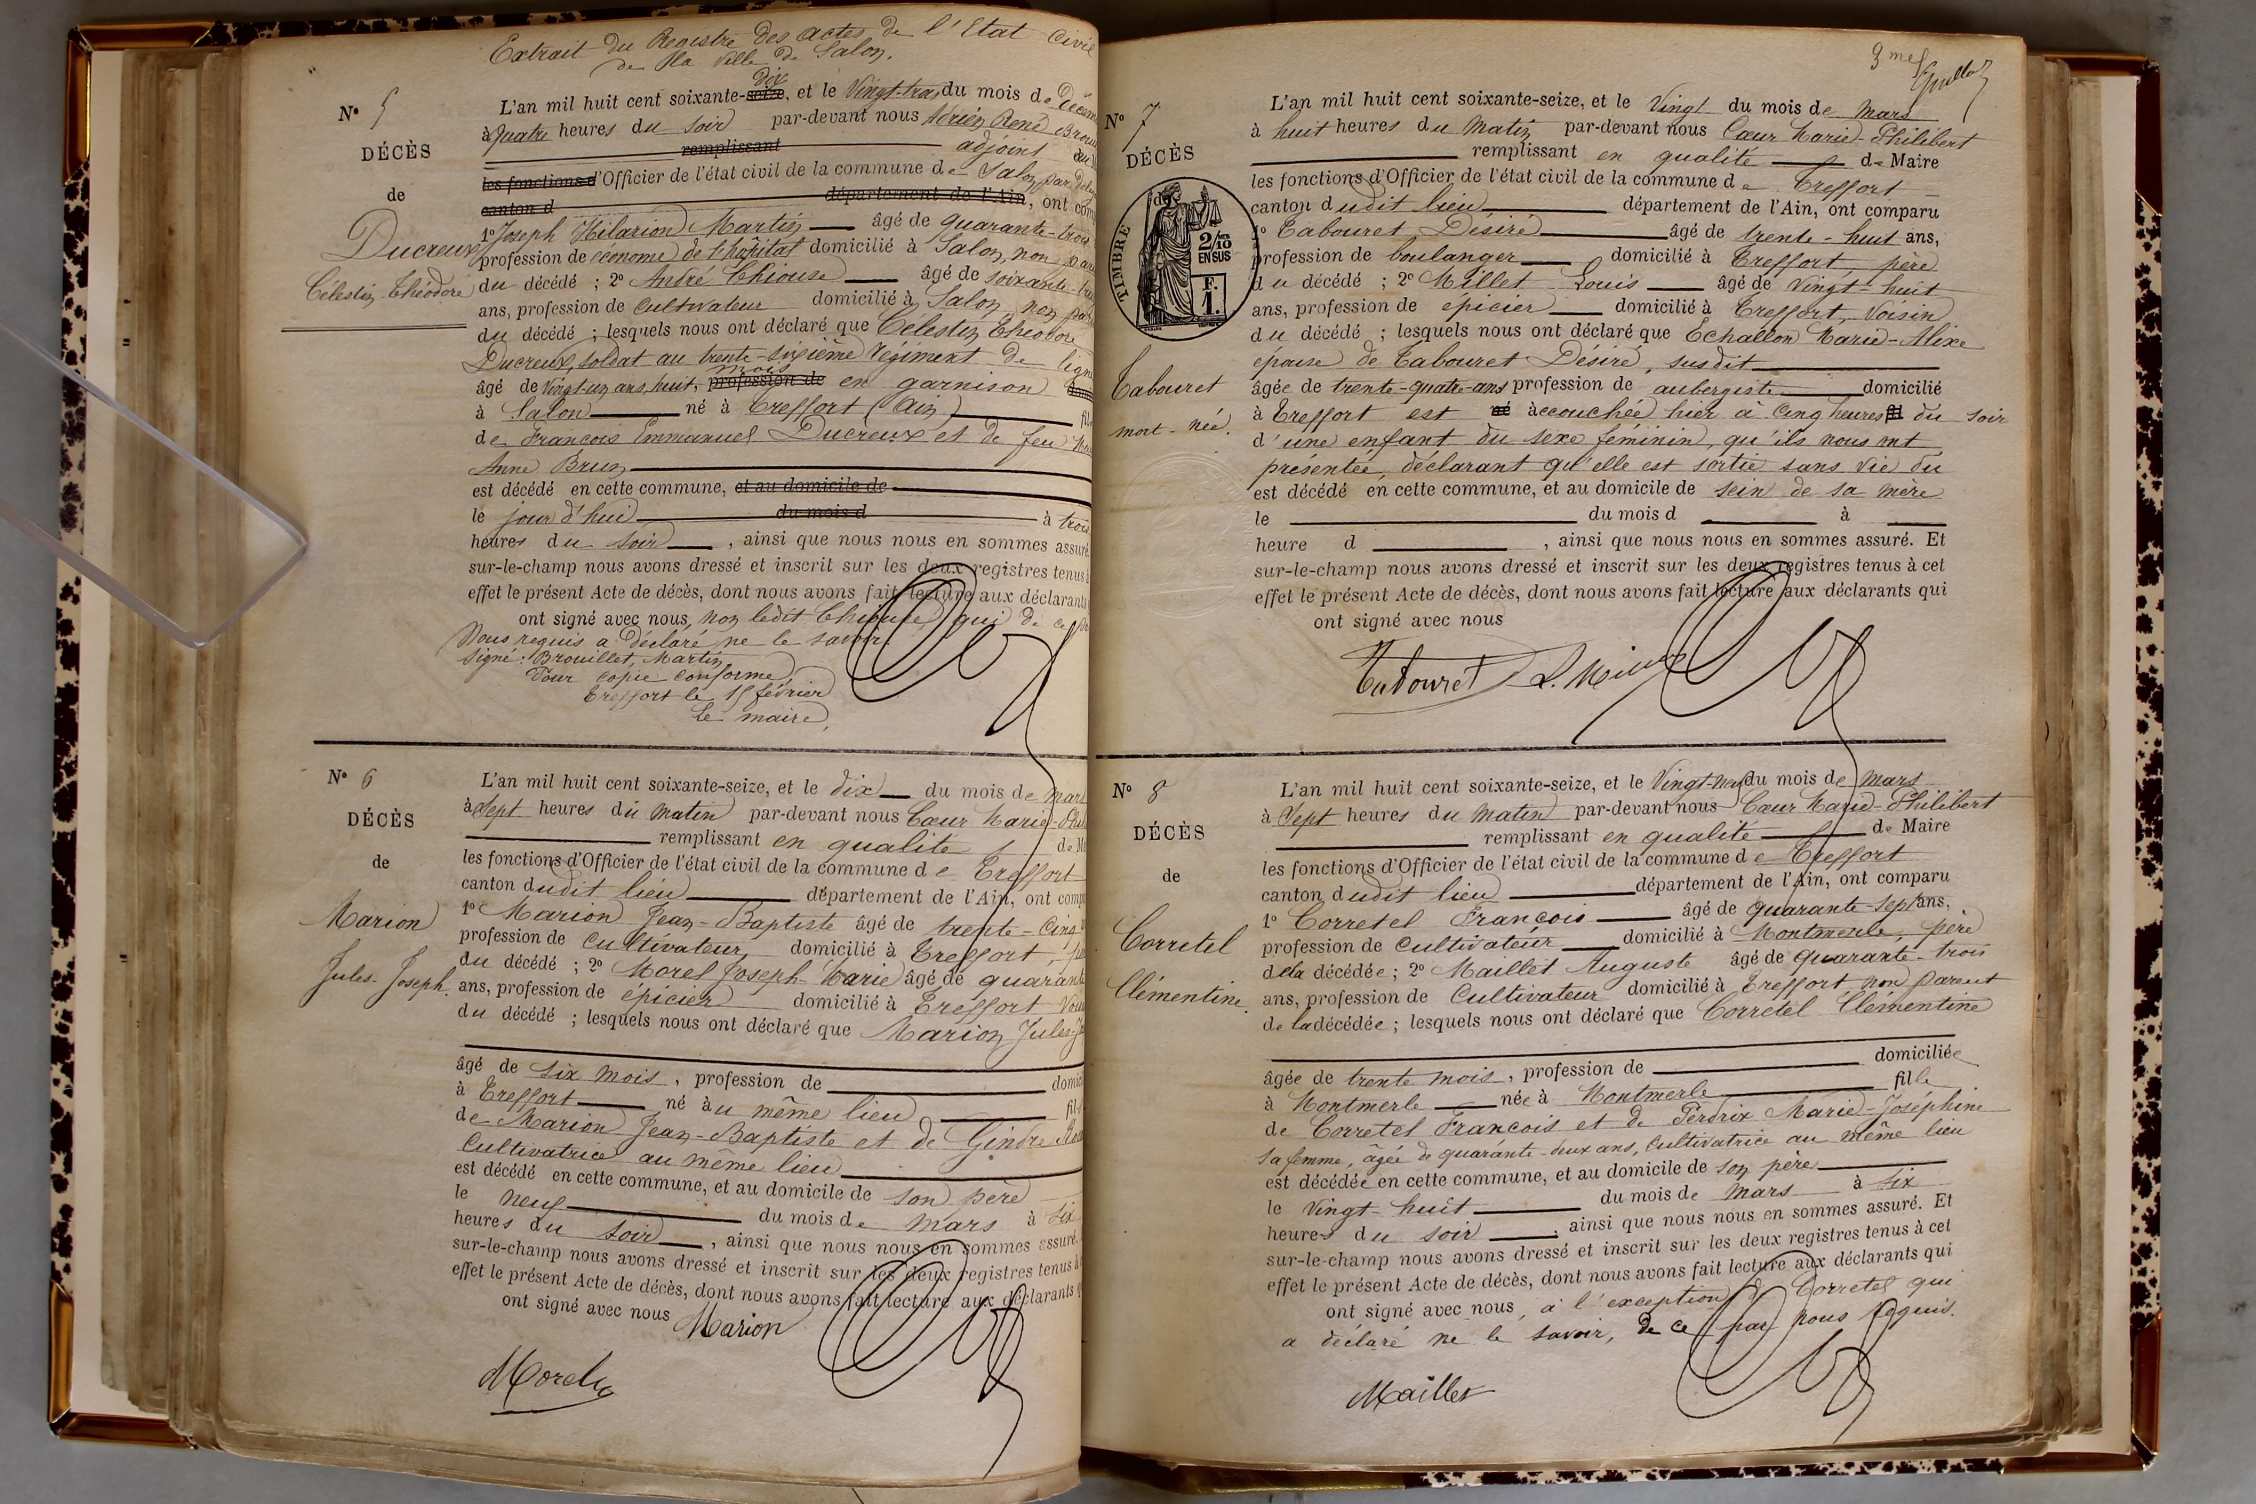 Extrait du Registre des actes de l'Etat Civil
de la Ville de Salon.
N° 5
DÉCÈS
de
Ducreux
Célestin Théodore
L'an mil huit cent soixante-seize dix, et le Vingt-trois du mois de Décem
à Quatre heures du soir par-devant nous Adrien René Brou
remplissant adjoint
les fonctions d'Officier de l'état civil de la commune de Salon
canton d département de l'Ain, ont com
1° Joseph Hilarion Martin âgé de quarante-trois
profession de économe de l'hôpital domicilié à Salon, non
du décédé ; 2° André Chiouse âgé de soixante
ans, profession de Cultivateur domicilié à Salon, non
du décédé ; lesquels nous ont déclaré que Célestin Théodore
Ducreux, soldat au trente-sixième Régiment de ligne
âgé de Vingt-un ans, huit mois, profession de en garnison
à Salon né à Treffort (Ain) fils
de François Emmanuel Ducreux et de feu
Anne Brun
est décédé en cette commune, et au domicile de
le jour d'hui du mois d à trois
heures du soir, ainsi que nous nous en sommes assuré.
sur-le-champ nous avons dressé et inscrit sur les deux registres tenus à
effet le présent Acte de décès, dont nous avons fait lecture aux déclarants
ont signé avec nous, non ledit Chiouse, qui de ce
Nous requis a déclaré ne le savoir
Signé : Brouillet, Martin
Pour copie conforme,
Treffort le 15 février
Le maire,
N° 6
DÉCÈS
de
Marion
Jules-Joseph.
L'an mil huit cent soixante-seize, et le dix du mois de Mars
à Sept heures du Matin par-devant nous Cœur Marie-Phil
remplissant en qualité de M
les fonctions d'Officier de l'état civil de la commune de Treffort
canton dudit lieu département de l'Ain, ont comp
1° Marion Jean-Baptiste âgé de trente-cinq
profession de Cultivateur domicilié à Treffort, pè
du décédé ; 2° Morel Joseph-Marie âgé de quarante
ans, profession de épicier domicilié à Treffort Vois
du décédé ; lesquels nous ont déclaré que Marion Jules-Jo
âgé de six mois, profession de domici
à Treffort né à u même lieu fils
de Marion Jean-Baptiste et de Gindre
Cultivatrice au même lieu
est décédé en cette commune, et au domicile de son père
le neuf du mois de Mars à six
heures du soir, ainsi que nous nous en sommes assuré.
sur-le-champ nous avons dressé et inscrit sur les deux registres tenus à
effet le présent Acte de décès, dont nous avons fait lecture aux déclarants q
ont signé avec nous
Marion
Morel
3me
N° 7
DÉCÈS
de
TIMBRE
2/10
EN SUS
F.
1.
Tabouret
mort-née.
L'an mil huit cent soixante-seize, et le Vingt du mois de Mars
à huit heures du Matin par-devant nous Cœur Marie-Philibert
remplissant en qualité de Maire
les fonctions d'Officier de l'état civil de la commune de Treffort
canton dudit lieu département de l'Ain, ont comparu
1° Tabouret Désiré âgé de trente-huit ans,
profession de boulanger domicilié à Treffort père
du décédé ; 2° Millet Louis âgé de vingt-huit
ans, profession de epicier domicilié à Treffort, Voisin
du décédé ; lesquels nous ont déclaré que Echallon Marie-Alixe
epouse de Tabouret Desiré, susdit
âgée de trente-quatre-ans profession de aubergiste domicilié
à Treffort est né accouchée hier à cinq heures fil du soir
d'une enfant du sexe féminin, qu'ils nous ont
présentée, déclarant qu'elle est sortie sans vie du
est décédé en cette commune, et au domicile de sein de sa mère
le du mois d à
heure d , ainsi que nous nous en sommes assuré. Et
sur-le-champ nous avons dressé et inscrit sur les deux registres tenus à cet
effet le présent Acte de décès, dont nous avons fait lecture aux déclarants qui
ont signé avec nous
Tabouret
N° 8
DÉCÈS
de
Corretel
Clémentine.
L'an mil huit cent soixante-seize, et le Vingt-neuf du mois de Mars
à Sept heures du Matin par-devant nous Cœur Marie-Philibert
remplissant en qualité de Maire
les fonctions d'Officier de l'état civil de la commune de Treffort
canton dudit lieu département de l'Ain, ont comparu
1° Corretel François âgé de quarante-sept ans,
profession de Cultivateur domicilié à Montmerle, père
dela décédée ; 2° Maillet Auguste âgé de quarante-trois
ans, profession de Cultivateur domicilié à Treffort non parent
de ladécédée ; lesquels nous ont déclaré que Corretel Clémentine
âgée de trente mois, profession de domiciliée
à Montmerle née à Montmerle fille
de Corretel François et de Perdrix Marie-Joséphine
sa femme, agée de quarante-deux ans, Cultivatrice au même lieu
est décédée en cette commune, et au domicile de son père
le Vingt-huit du mois de Mars à six
heures du soir, ainsi que nous nous en sommes assuré. Et
sur-le-champ nous avons dressé et inscrit sur les deux registres tenus à cet
effet le présent Acte de décès, dont nous avons fait lecture aux déclarants qui
ont signé avec nous, à l'exception de Corretel qui
a déclaré ne le savoir, de ce par nous requis.
Maillet